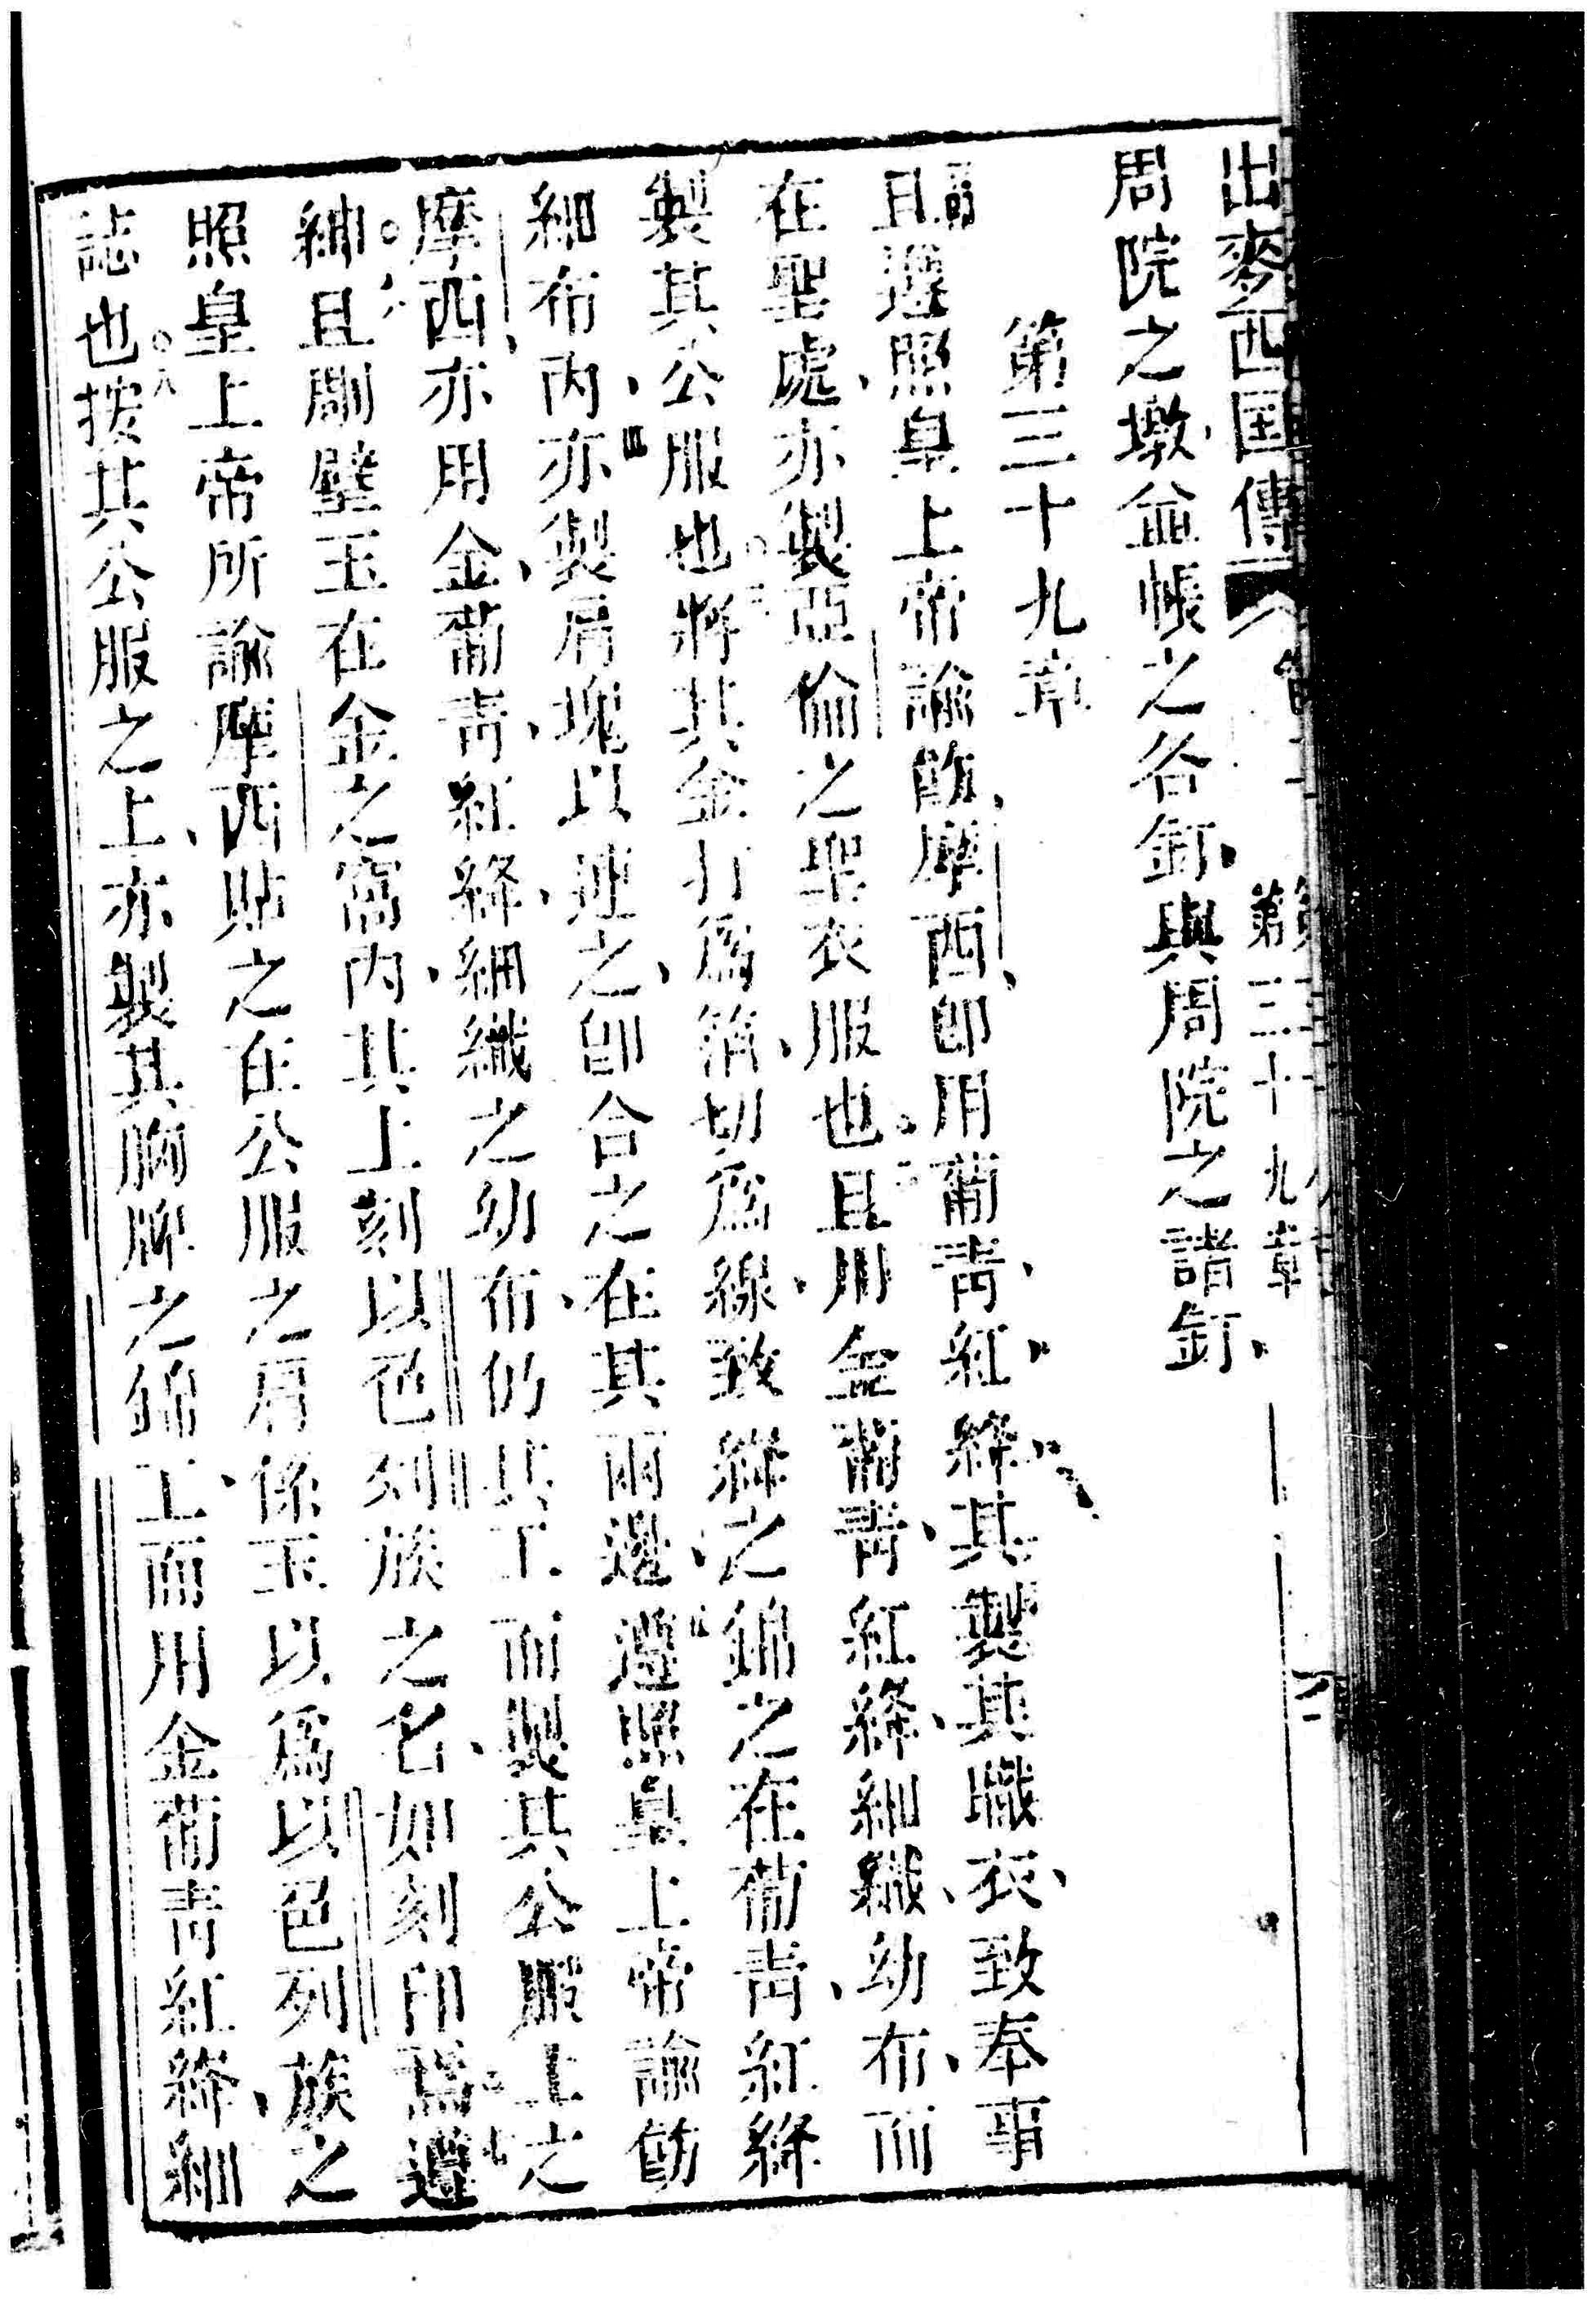 出麥西国傳 第三十九章
周院之墩並帳之各釘、與周院之諸釘、
第三十九章
且遵照皇上帝諭飭摩西、卽用葡青、紅、絳、其製其職衣、致奉事
在聖處、亦製亞倫之聖衣服也。二且用金葡青、紅絳、細織、幼布、而
製其公服也。三將其金打爲箔、切爲線、致絳之錦之在葡青、紅絳
細布內、四亦製肩塊以連之、卽合之在其兩邊、五遵照皇上帝諭飭
摩西、亦用金、葡青、紅絳、細織之幼布、仍其工而製其公服上之
紳。六且剮璧玉在金之窩內、其上刻以色列族之名、如刻印焉。七遵
照皇上帝所諭摩西貼之在公服之肩係玉以爲以色列族之
誌也。八按其公服之上、亦製其胸牌之錦工、而用金葡青紅絳、細